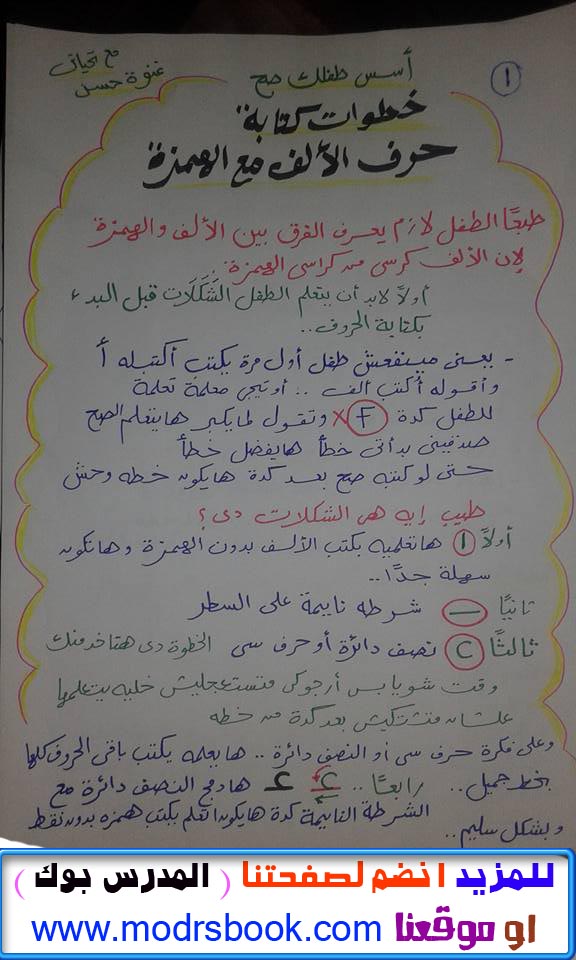 مع تحياتى
غنوة حسن
أسس طفلك صح
١
خطوات كتابة
حرف الألف مع الهمزة
طبعًا الطفل لازم يعرف الفرق بين الألف والهمزة
لإن الألف كرسى من كراسى الهمزة
أولاً لابد أن يتعلم الطفل الشَكَلَات قبل البدء
بكتابة الحروف..
- يعنى مينفعش طفل أول مرة يكتب أكتبله أ
وأقوله أكتب ألف .. أو تيجى معلمة تعلمة
للطفل كدة F x وتقول لما يكبر هايتعلم الصح
صدقينى بدأتى خطأ هايفضل خطأ
حتى لو كتبه صح بعد كدة هايكون خطه وحش
طيب إيه هى الشكلات دى؟
أولاً ا هاتعلميه يكتب الألف بدون الهمزة وهاتكون
سهلة جدًا..
ثانيًا — شرطه نايمة على السطر
ثالثًا C نصف دائرة أو حرف سى الخطوة دى هتاخد منك
وقت شويا بس أرجوكى متستعجليش خليه يتعلمها
علشان متشتكيش بعد كدة من خطه
وعلى فكرة حرف سى أو النصف دائرة .. هايعلمه يكتب باقى الحروف كلها
بخط جميل.. رابعًا.. ء ء هادمج النصف دائرة مع
الشرطة النايمة كدة هايكون اتعلم يكتب همزه بدون نقط
وبشكل سليم..
للمزيد انضم لصفحتنا ( المدرس بوك )
او موقعنا www.modrsbook.com